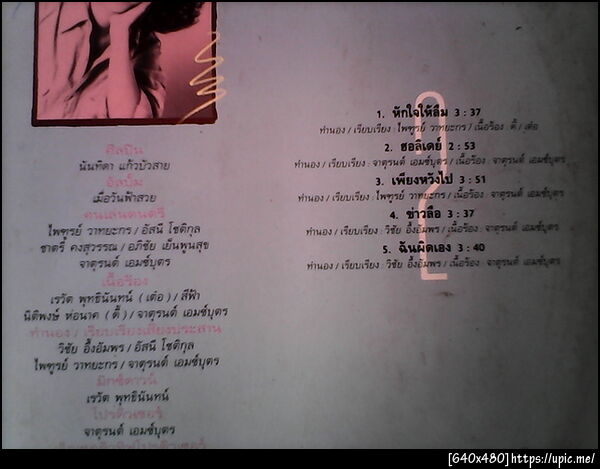 ศิลปิน
นันทิดา แก้วบัวสาย
อัลบั้ม
เมื่อวันฟ้าสวย
คนเล่นดนตรี
ไพฑูรย์ วาทยะกร / อัสนี โชติกุล
ชาตรี คงสุวรรณ / อภิชัย เย็นพูนสุข
จาตุรนต์ เอมซ์บุตร
เนื้อร้อง
เรวัต พุทธินันทน์ ( เต๋อ ) / สีฟ้า
นิติพงษ์ ห่อนาค ( ดี้ ) / จาตุรนต์ เอมซ์บุตร
ทำนอง / เรียบเรียงเสียงประสาน
วิชัย อึ้งอัมพร / อัสนี โชติกุล
ไพฑูรย์ วาทยะกร / จาตุรนต์ เอมซ์บุตร
มิกซ์ดาวน์
เรวัต พุทธินันทน์
โปรดิวเซอร์
จาตุรนต์ เอมซ์บุตร
2
1. หักใจให้ลืม 3 : 37
ทำนอง / เรียบเรียง : ไพฑูรย์ วาทยะกร / เนื้อร้อง : ดี้ / เต๋อ
2. ฮอลิเดย์ 2 : 53
ทำนอง / เรียบเรียง : จาตุรนต์ เอมซ์บุตร / เนื้อร้อง : จาตุรนต์ เอมซ์บุตร
3. เพียงหวังไป 3 : 51
ทำนอง / เรียบเรียง : ไพฑูรย์ วาทยะกร / เนื้อร้อง : จาตุรนต์ เอมซ์บุตร
4. ข่าวลือ 3 : 37
ทำนอง / เรียบเรียง : วิชัย อึ้งอัมพร / เนื้อร้อง : จาตุรนต์ เอมซ์บุตร
5. ฉันผิดเอง 3 : 40
ทำนอง / เรียบเรียง : วิชัย อึ้งอัมพร / เนื้อร้อง : จาตุรนต์ เอมซ์บุตร
[640x480]https://upic.me/